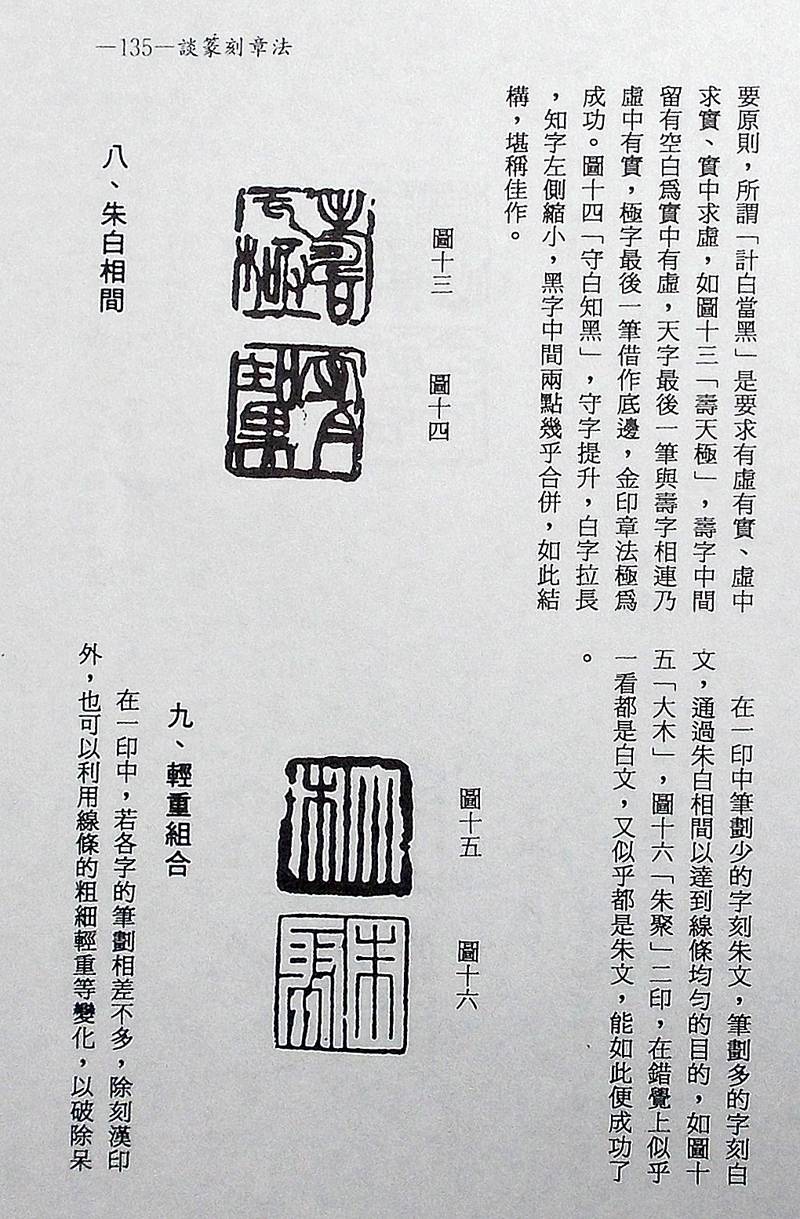 —135—談篆刻章法
要原則，所謂「計白當黑」是要求有虛有實、虛中
求實、實中求虛，如圖十三「壽天極」，壽字中間
留有空白爲實中有虛，天字最後一筆與壽字相連乃
虛中有實，極字最後一筆借作底邊，金印章法極爲
成功。圖十四「守白知黑」，守字提升，白字拉長
，知字左側縮小，黑字中間兩點幾乎合併，如此結
構，堪稱佳作。
圖十三
圖十四
八、朱白相間
在一印中筆劃少的字刻朱文，筆劃多的字刻白
文，通過朱白相間以達到線條均勻的目的，如圖十
五「大木」，圖十六「朱聚」二印，在錯覺上似乎
一看都是白文，又似乎都是朱文，能如此便成功了
。
圖十五
圖十六
九、輕重組合
在一印中，若各字的筆劃相差不多，除刻漢印
外，也可以利用線條的粗細輕重等變化，以破除呆